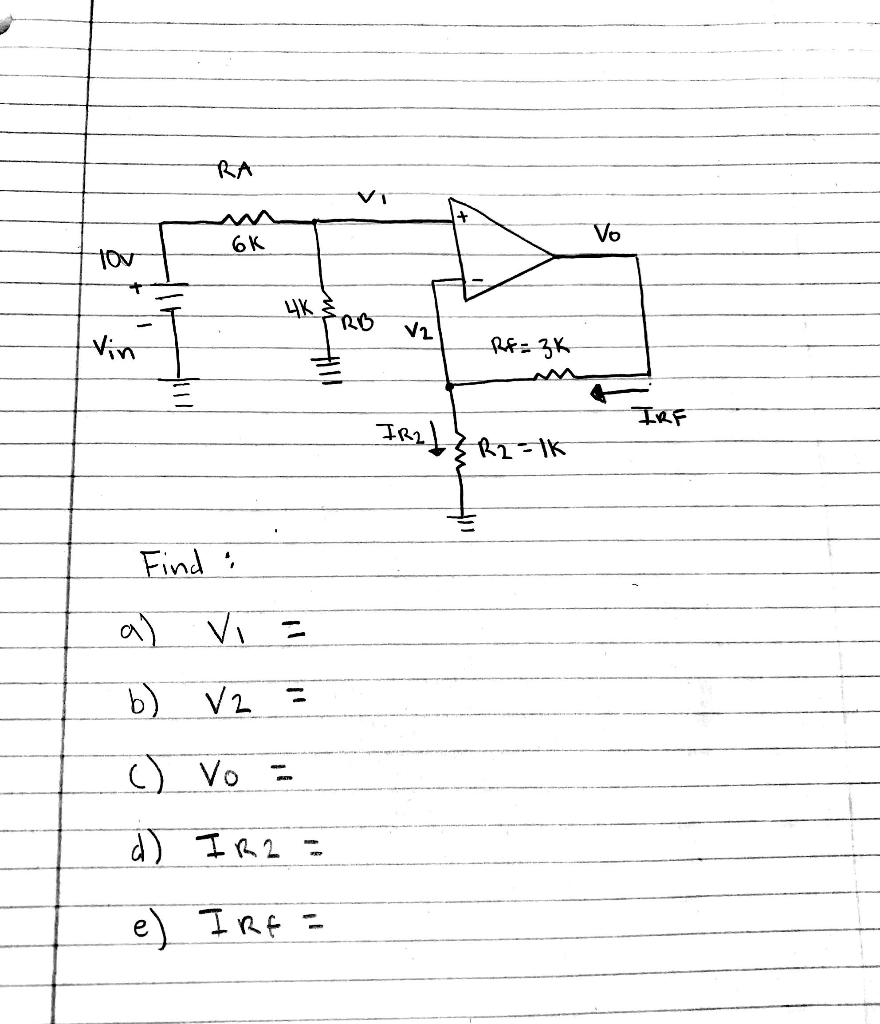 RA
V1
+
Vo
6K
10V
+
-
4K
RB
V2
-
Vin
Rf = 3K
IRF
IR2
R2 = 1K
Find :
a) V1 =
b) V2 =
c) Vo =
d) IR2 =
e) IRf =